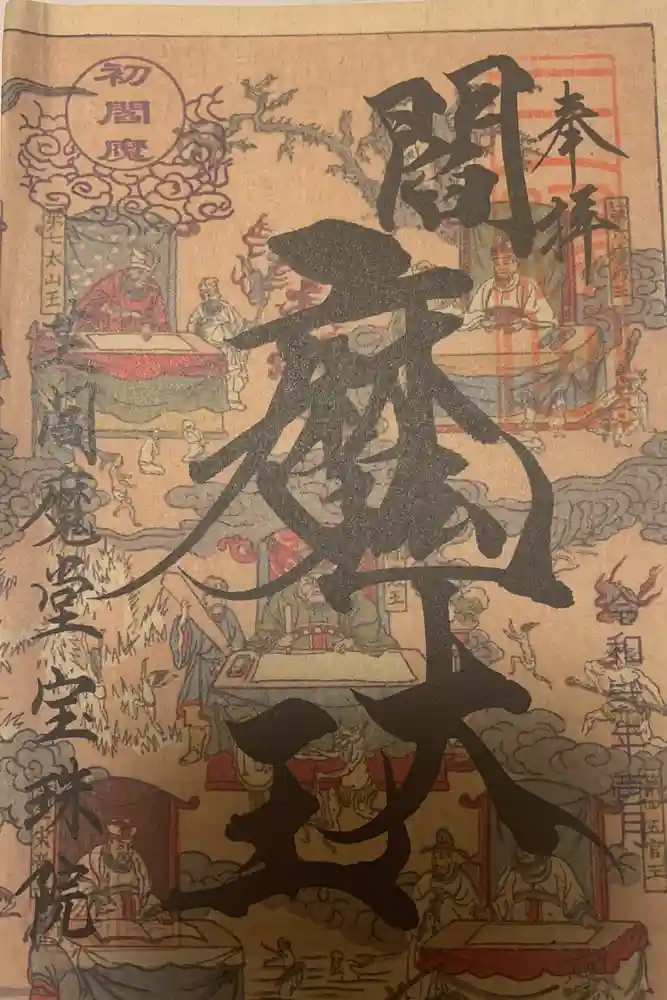 奉拝
閻魔大王
初
閻
魔
令和弐年壱月
閻魔堂宝珠院
第七太山王